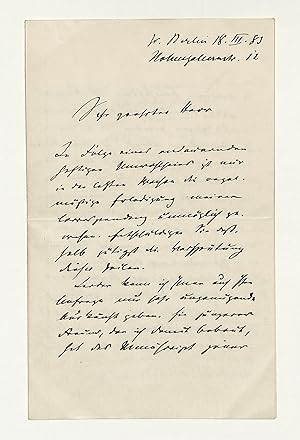 W. Berlin 18. III. 83
Hohenzollernstr. 12
Sehr geehrter Herr
In Folge eines andauernden
heftigen Unwohlseins ist mir
in den letzten Wochen die regel-
mäßige Erledigung meiner
Correspondenz unmöglich ge-
wesen. Entschuldigen Sie deß-
halb gütigst die Verspätung
dieser Zeilen.
Leider kann ich Ihnen auf Ihre
Anfrage nur sehr ungenügende
Auskunft geben. Ein jüngerer
Freund, den ich damit betraut,
hat das Manuscript jener